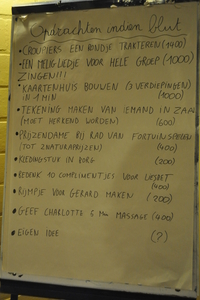 Opdrachten indien blut
• CROUPIERS EEN RONDJE TRAKTEREN (1400)
• EEN MELIG LIEDJE VOOR HELE GROEP (1000)
ZINGEN!!!
• KAARTENHUIS BOUWEN (3 VERDIEPINGEN)
in 1 MIN (1000)
• TEKENING MAKEN VAN IEMAND IN ZAAL
(MOET HERKEND WORDEN) (600)
• PRIJZENDAME BIJ RAD VAN FORTUIN SPELEN
(TOT 2 NATURAPRIJZEN) (400)
• KLEDINGSTUK IN BORG (200)
• BEDENK 10 COMPLIMENTJES VOOR LIESBET
(400)
• RIJMPJE VOOR GERARD MAKEN (200)
• GEEF CHARLOTTE 5 Min MASSAGE (400)
• EIGEN IDEE (?)